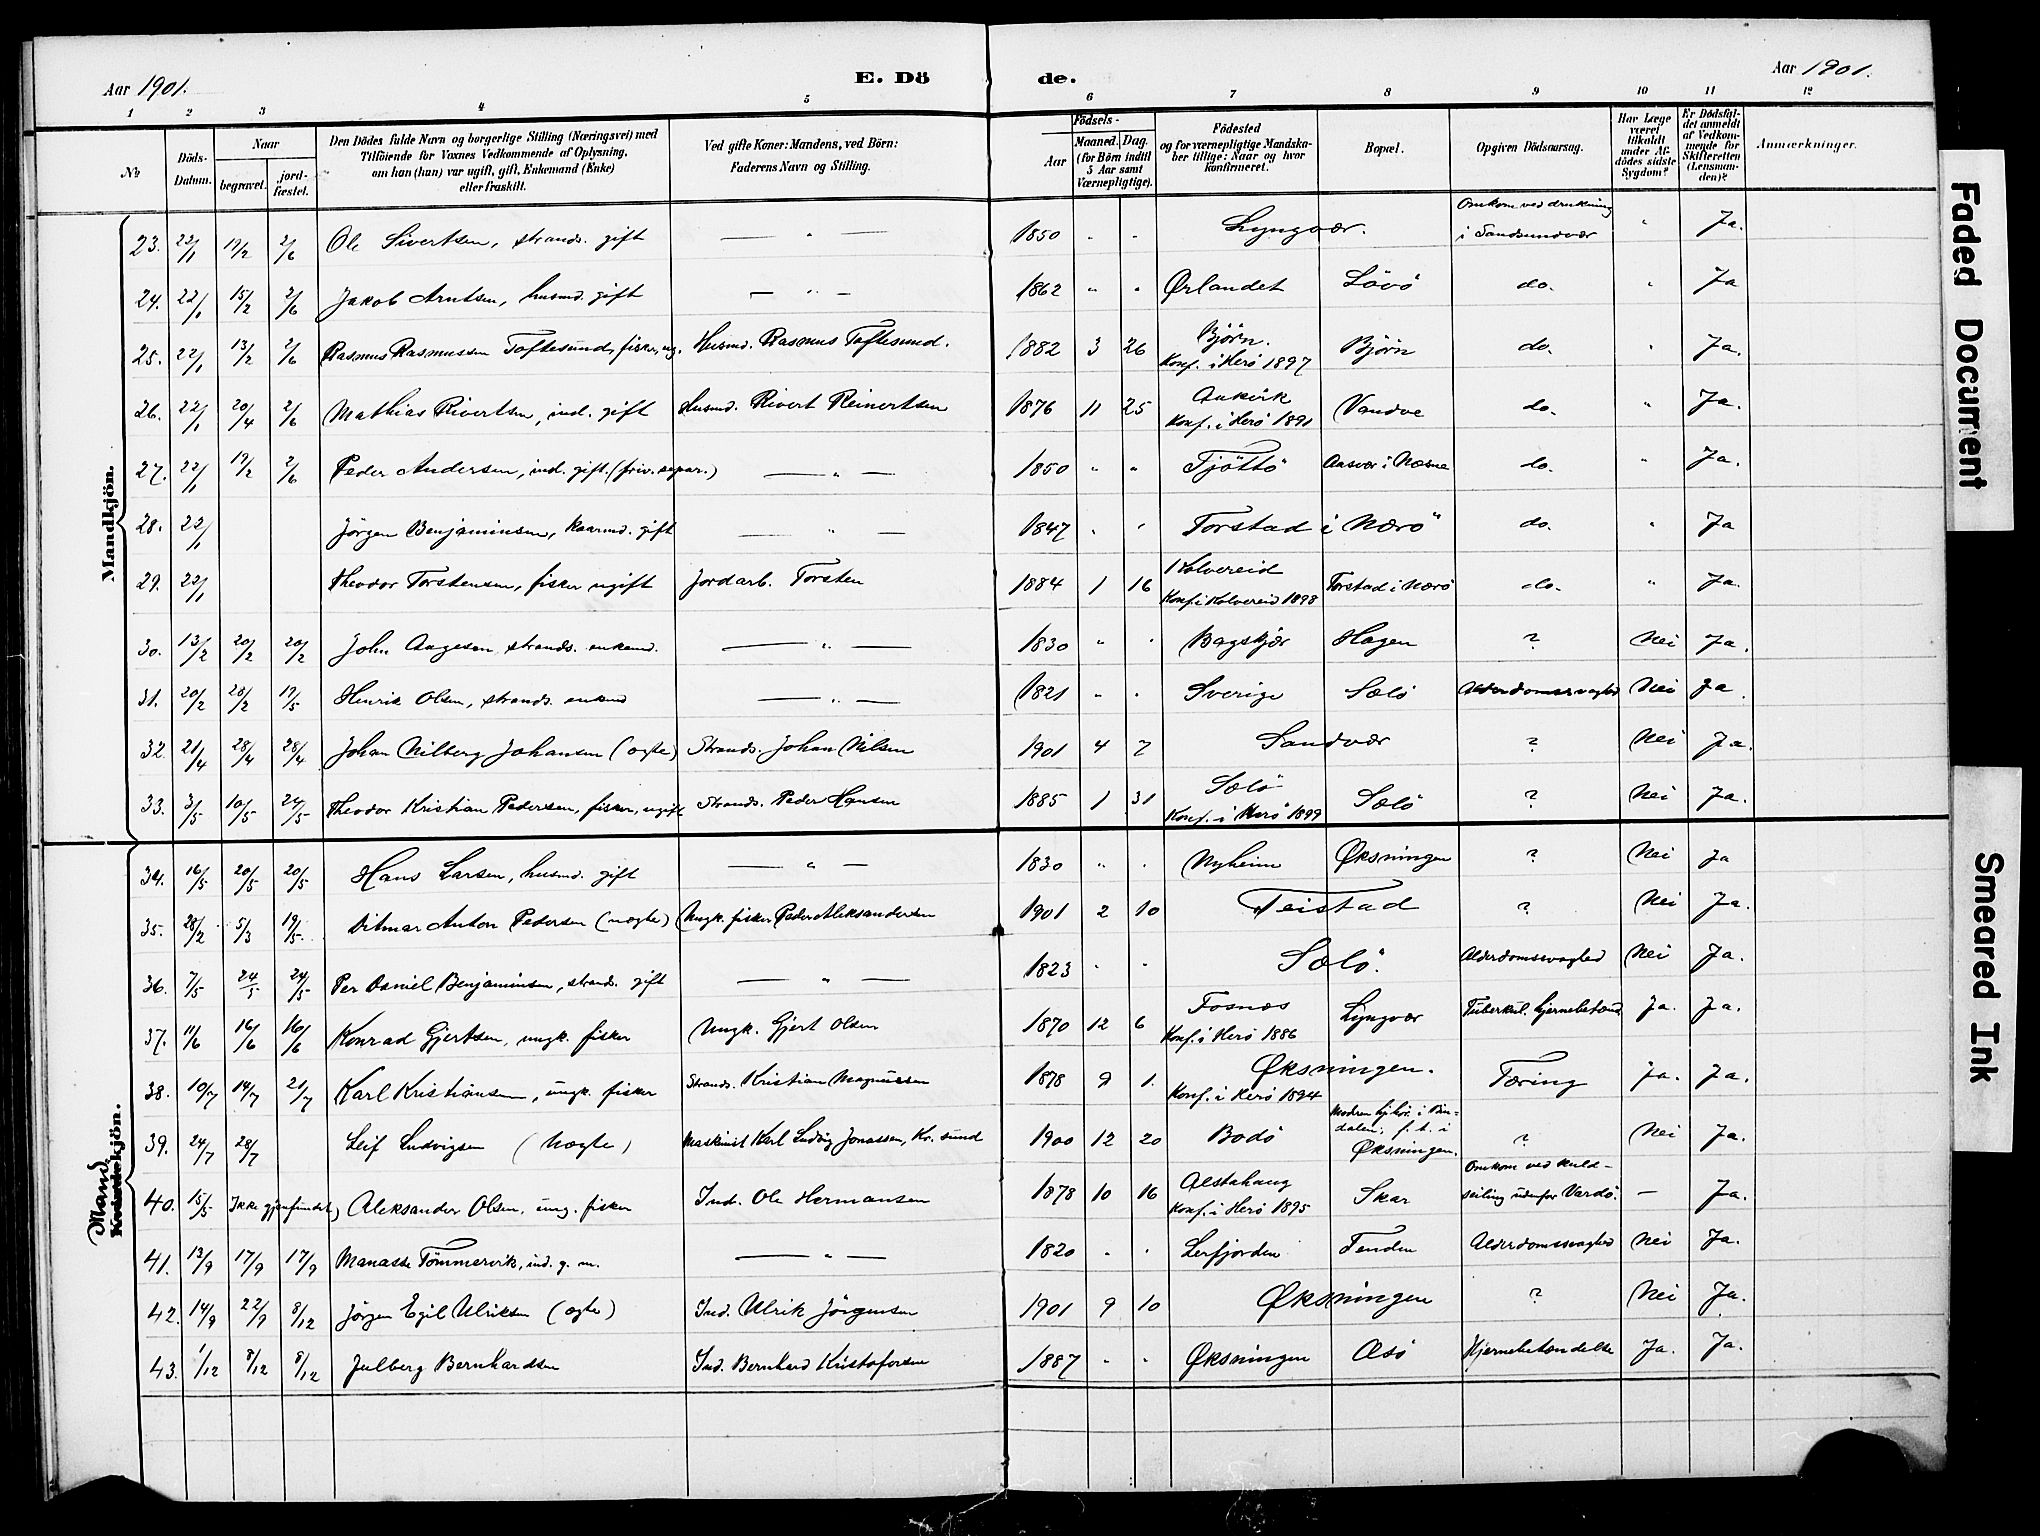 Aar 1901. E. Dö de. Aar 1901.
1 2 3 4 5 6 7 8 9 10 11 12
№
Döds-Datum.
Naar
begravet.
jord-fæstet.
Den Dödes fulde Navn og borgerlige Stilling (Næringsvei) med
Tilföiende for Voxnes Vedkommende af Oplysning,
om han (hun) var ugift, gift, Enkemand (Enke)
eller fraskilt.
Ved gifte Koner: Mandens, ved Börn:
Faderens Navn og Stilling.
Födsels-
Aar
Maaned. Dag.
(for Börn indtil
5 Aar samt
Værnepligtige).
Födested
og for værnepligtige Mandska-
ber tillige: Naar og hvor
konfirmeret.
Bopæl.
Opgiven Dödsaarsag.
Har Læge
været
tilkaldt
under Af-
dödes sidste
Sygdom?
Er Dödsfal-
det anmeldt
af Vedkom-
mende for
Skifteretten
(Lensman-
den)?
Anmærkninger.
Mandkjön.
23. 22/1 19/2 2/6 Ole Sivertsen, strands. gift — " — 1850 " " Lyngvær. Omkom ved drukning i Sandsundvær " Ja.
24. 22/1 15/2 2/6 Jakob Arntsen, husmd. gift — " — 1862 " " Ørlandet Lövö do. " Ja
25. 22/1 13/2 2/6 Rasmus Rasmussen Toftesund, fisker, ug. Husmd. Rasmus Toftesund. 1882 3 26 Björn. Konf. i Herö 1897 Björn do. " Ja.
26. 22/1 20/4 2/6 Mathias Rivertsen, ind. gift Husmd. Rivert Reinertsen 1876 11 25 Konf. i Herö 1891 Vandve do. " Ja.
27. 22/1 19/2 2/6 Peder Andersen, ind. gift. (friv. separ.) — " — 1850 " " Tjöttö Aasvær i Næsne do. " Ja.
28. 22/1 Jörgen Benjaminsen, kaarmd. gift " — 1847 " " Torstad i Nærö do. " Ja
29. 22/1 Theodor Torstensen, fisker ugift Jordarb. Torsten 1884 1 16 Kolvereid Konf. i Kolvereid 1898 Torstad i Nærö do. " Ja.
30. 13/2 20/2 20/2 John Aagesen, strands. enkemd. — " — 1830 " " Bagskjær Hagen ? Nei Ja.
31. 20/2 28/2 19/5 Henrik Olsen, strands. enkemd — " — 1821 " " Sverige Sælö Alderdomssvaghed Nei Ja.
32. 21/4 28/4 28/4 Johan Nilberg Johansen (ægte) Strands. Johan Nilsen 1901 4 7 Sandvær ? Nei Ja.
33. 3/5 10/5 24/5 Theodor Kristian Pedersen, fisker, ugift Strands. Peder Hansen 1885 1 31 Sælö Konf. i Herö 1899 Sælö ? Nei Ja.
Mand
Kvindekjön.
34. 16/5 20/5 20/5 Hans Larsen, husmd. gift — " — 1830 " " Nyheim Øksningen ? Nei Ja
35. 28/2 5/3 19/5 Ditmar Anton Pedersen (uægte) Ungk. fisker Peder Aleksandersen 1901 2 10 Teistad ? Nei Ja.
36. 7/5 24/5 24/5 Per Daniel Benjaminsen, strands. gift — " — 1823 " " Sælö. Alderdomssvaghed Nei Ja.
37. 11/6 16/6 16/6 Konrad Gjertsen, ungk. fisker Ungk. Gjert Olsen 1870 12 6 Fosnæs Konf. i Herö 1886 Lyngvær Tuberkul. hjernebetænd. Ja. Ja.
38. 10/7 14/7 21/7 Karl Kristiansen, ungk. fisker Strands. Kristian Magnussen 1878 9 1. Øksningen. Konf. i Herö 1894 Tæring Ja. Ja.
39. 24/7 28/7 Leif Ludvigsen (Uægte) Maskinist Karl Ludvig Jonassen, Kr. sund 1900 12 20 Bodö Moderen hjhör. i Bin-dalen; f. t. i Øksningen. ? Nei Ja.
40. 15/5 Ikke gjenfundet) Aleksander Olsen, ung. fisker Ind. Ole Hermansen 1878 10 16 Alstahaug Konf. i Herö 1895 Skar Omkom ved kuld-seiling udenfor Vardö. — Ja.
41. 13/9 17/9 17/9 Manasse Tömmervik, ind. g. m. — " — 1820 " " Leifjorden Tenden Alderdomssvaghed Nei Ja.
42. 14/9 22/9 8/12 Jörgen Egil Ulriksen (ægte) Ind. Ulrik Jörgensen 1901 9 10 Øksningen ? Nei Ja.
43. 1/12 8/12 8/12 Julberg Bernhardsen Ind. Bernhard Kristofersen 1887 " " Øksningen Æsö Hjernebetændelse Ja. Ja.
Faded Document
Smeared Ink